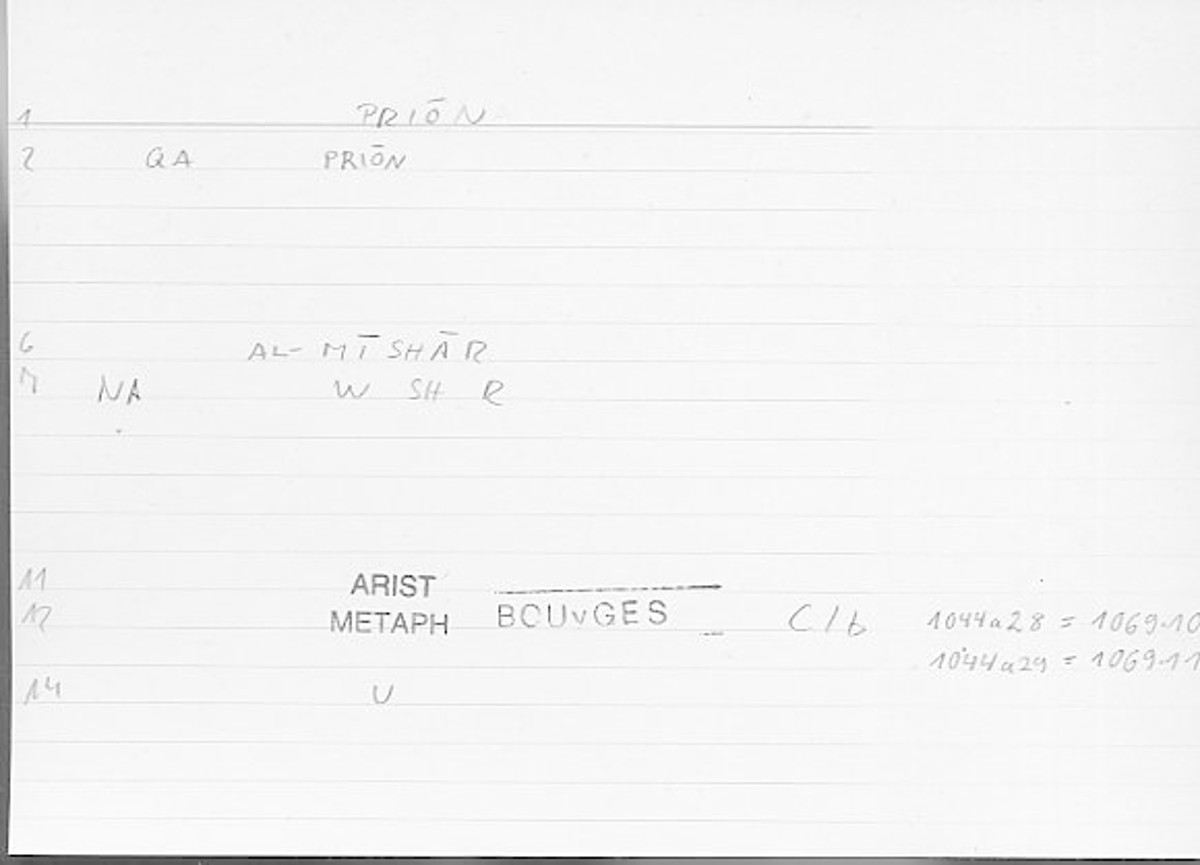 1 PRIŌN
2 QA PRIŌN
6 AL- MĪSHĀR
7 NA W SH R
11 ARIST
12 METAPH BOUVGES C/b 1044a28 = 1069.10
1044a29 = 1069.11
14 U